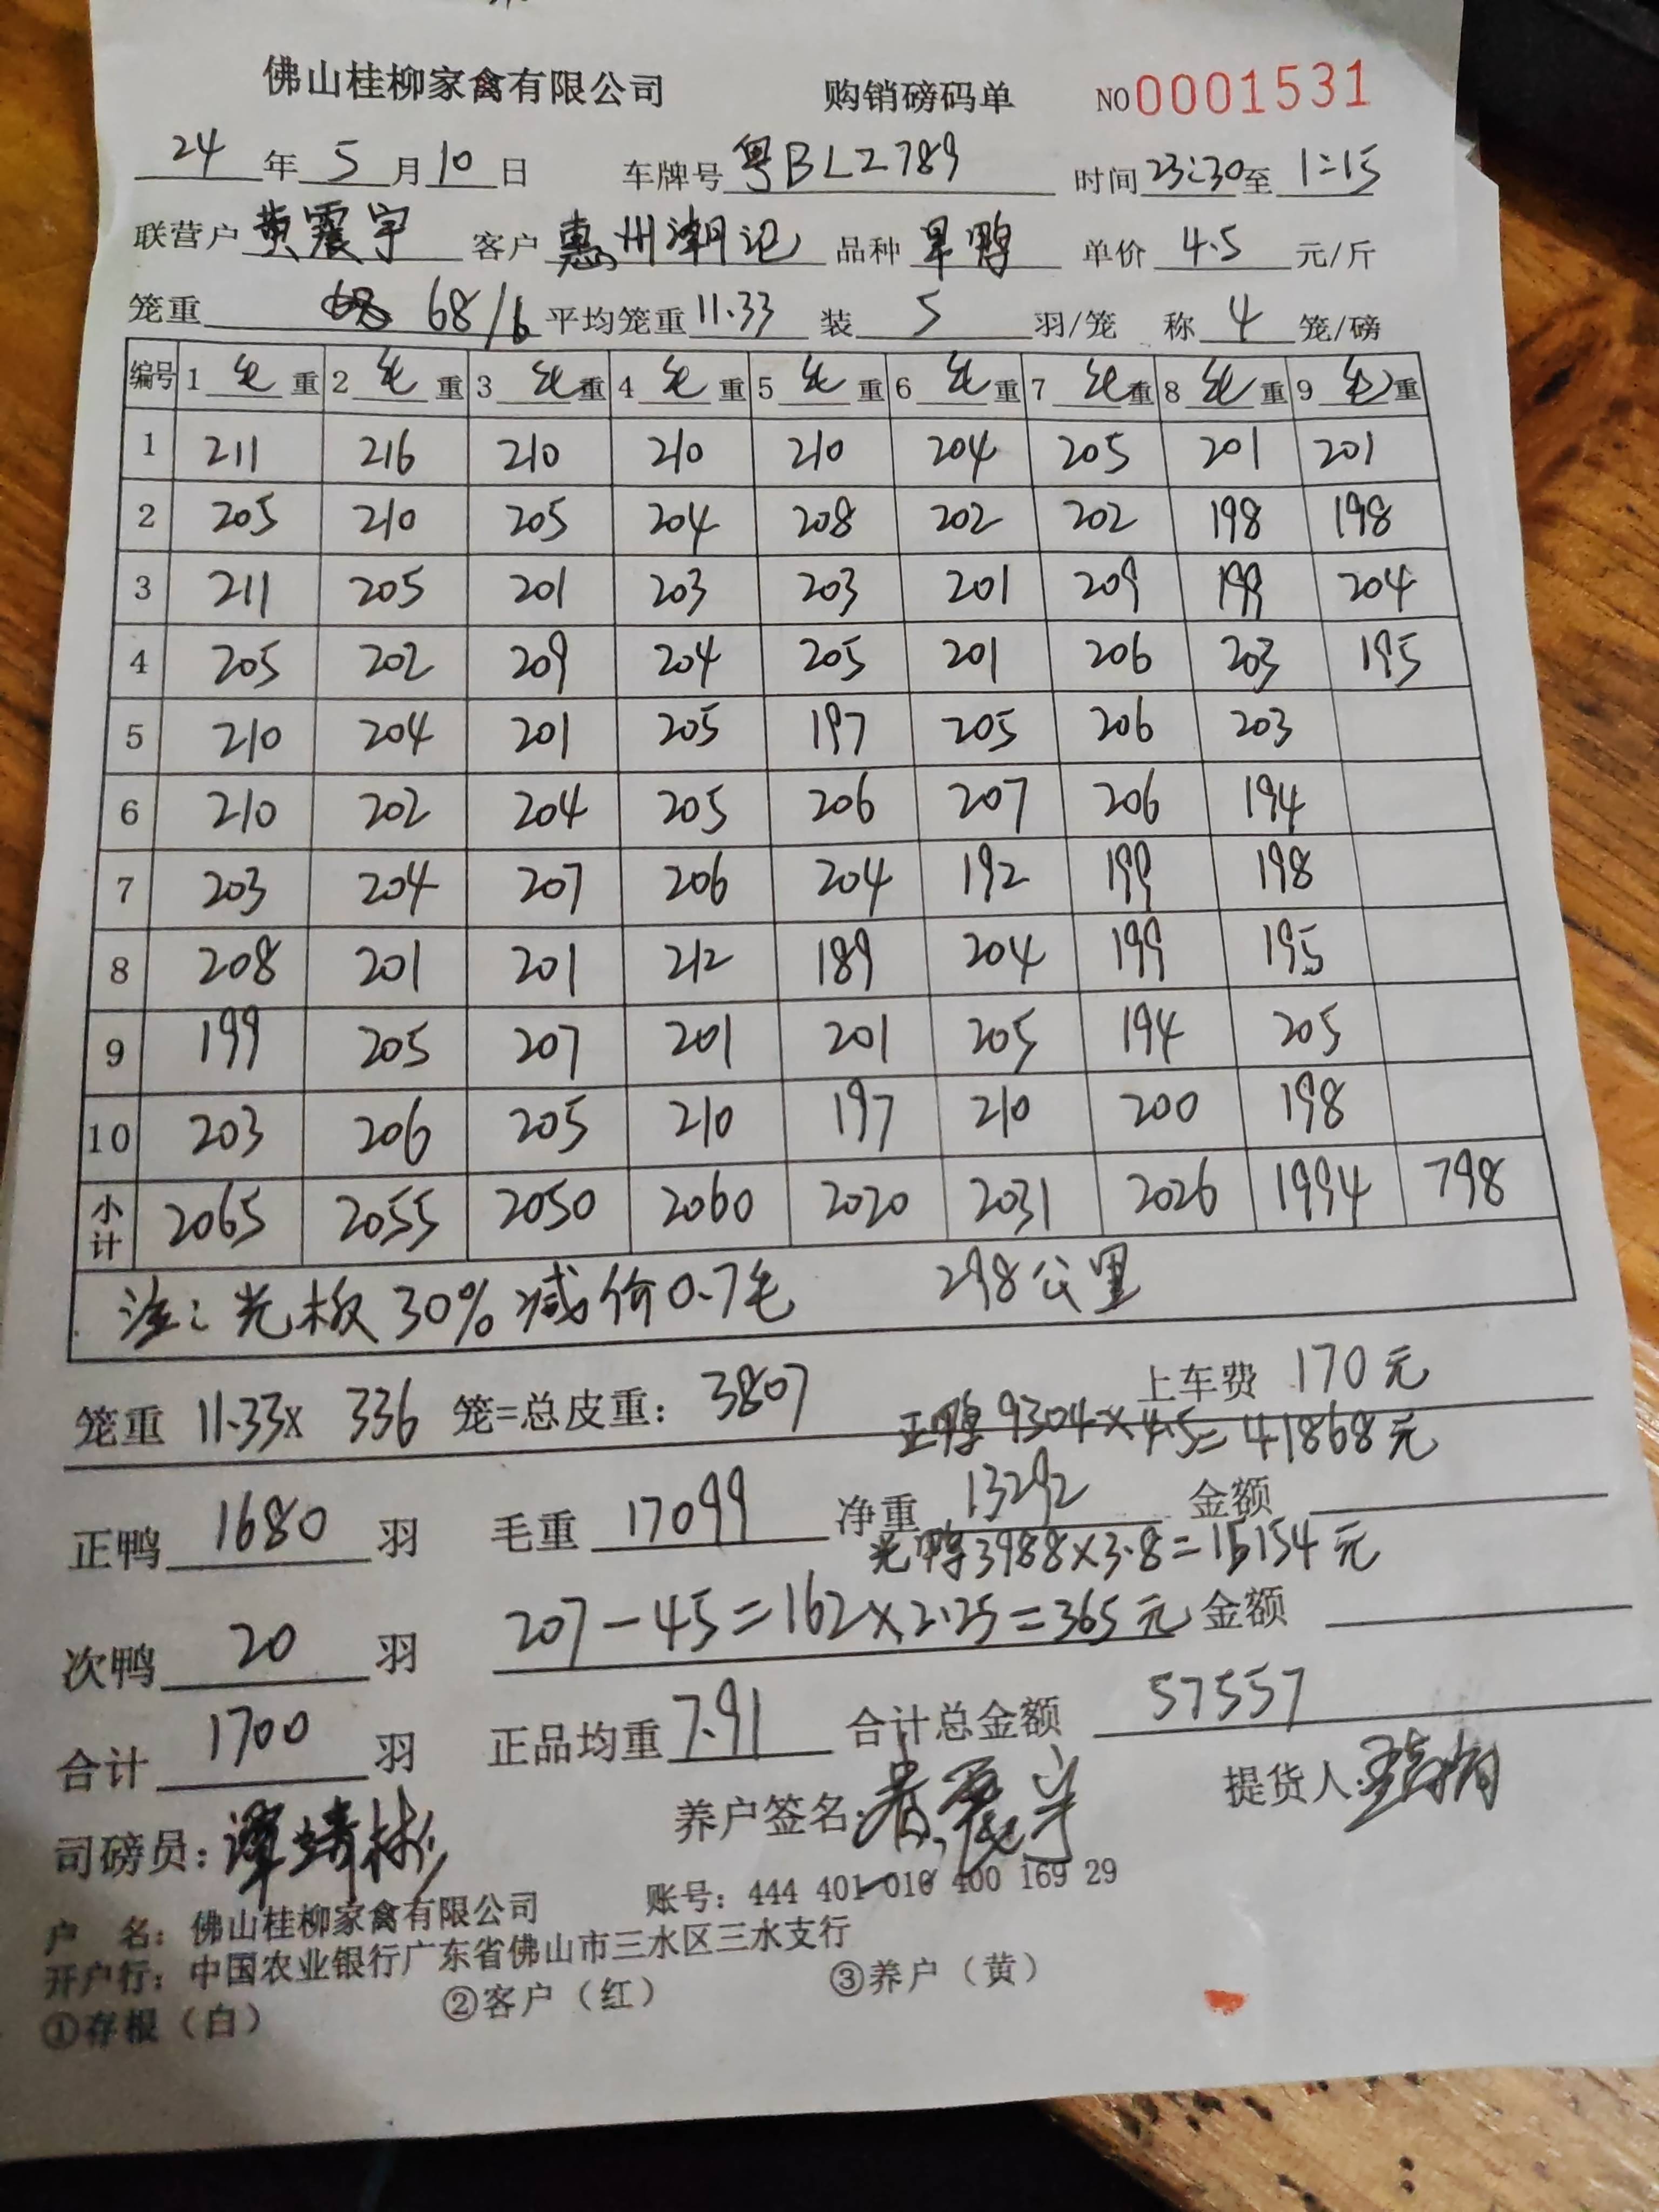 佛山桂柳家禽有限公司 购销磅码单 NO0001531
24年5月10日 车牌号粤BL2789 时间23:30至1:15
联营户黄震宇 客户惠州潮记 品种旱鸭 单价4.5元/斤
笼重 68/6 平均笼重11.33 装5羽/笼 称4笼/磅
编号 1毛重 2毛重 3毛重 4毛重 5毛重 6毛重 7毛重 8毛重 9毛重
1 211 216 210 210 210 204 205 201 201
2 205 210 205 204 208 202 202 198 198
3 211 205 201 203 203 201 209 199 204
4 205 202 209 204 205 201 206 203 195
5 210 204 201 205 197 205 206 203
6 210 202 204 205 206 207 206 194
7 203 204 207 206 204 192 199 198
8 208 201 201 212 189 204 199 195
9 199 205 207 201 201 205 194 205
10 203 206 205 210 197 210 200 198
小计 2065 2055 2050 2060 2020 2031 2026 1994 798
注:光板30%减价0.7毛 298公里
笼重11.33x 336笼=总皮重:3807 上车费170元
正鸭9304×4.5=41868元
正鸭1680羽 毛重17099 净重13292 金额
光鸭3988×3.8=15154元
次鸭20羽 207-45=162×2.25=365元 金额
合计1700羽 正品均重7.91 合计总金额57557
司磅员:谭靖彬 养户签名:黄震宇 提货人:
户 名:佛山桂柳家禽有限公司 账号:444 401 010 400 169 29
开户行:中国农业银行广东省佛山市三水区三水支行
①存根(白) ②客户(红) ③养户(黄)